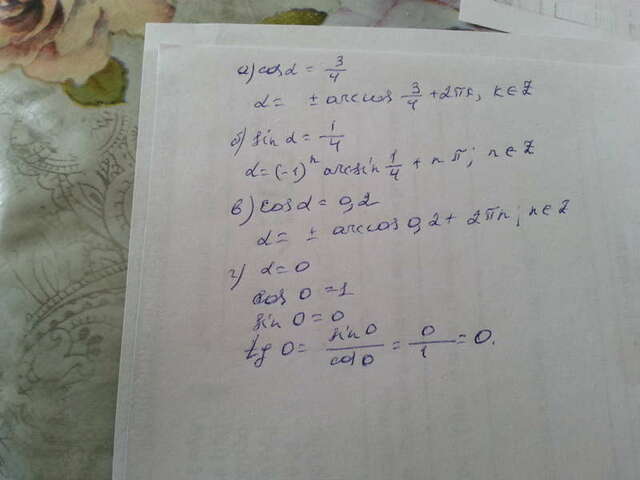 а) cos α = 3/4
α = ± arccos 3/4 + 2πk, k ∈ Z
б) sin α = 1/4
α = (-1)ⁿ arcsin 1/4 + nπ; n ∈ Z
в) cos α = 0,2
α = ± arccos 0,2 + 2πn; n ∈ Z
г) α = 0
cos 0 = 1
sin 0 = 0
tg 0 = sin 0/cos 0 = 0/1 = 0.